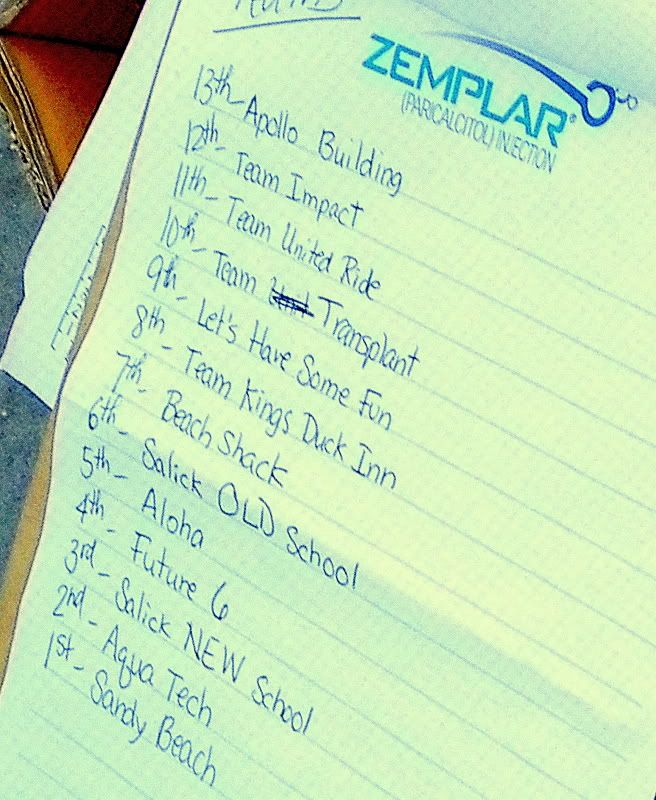 ZEMPLAR®
(PARICALCITOL) INJECTION
13th - Apollo Building
12th - Team Impact
11th - Team United Ride
10th - Team Transplant
9th - Let's Have Some Fun
8th - Team Kings Duck Inn
7th - Beach Shack
6th - Salick OLD School
5th - Aloha
4th - Future 6
3rd - Salick NEW School
2nd - Aqua Tech
1st - Sandy Beach